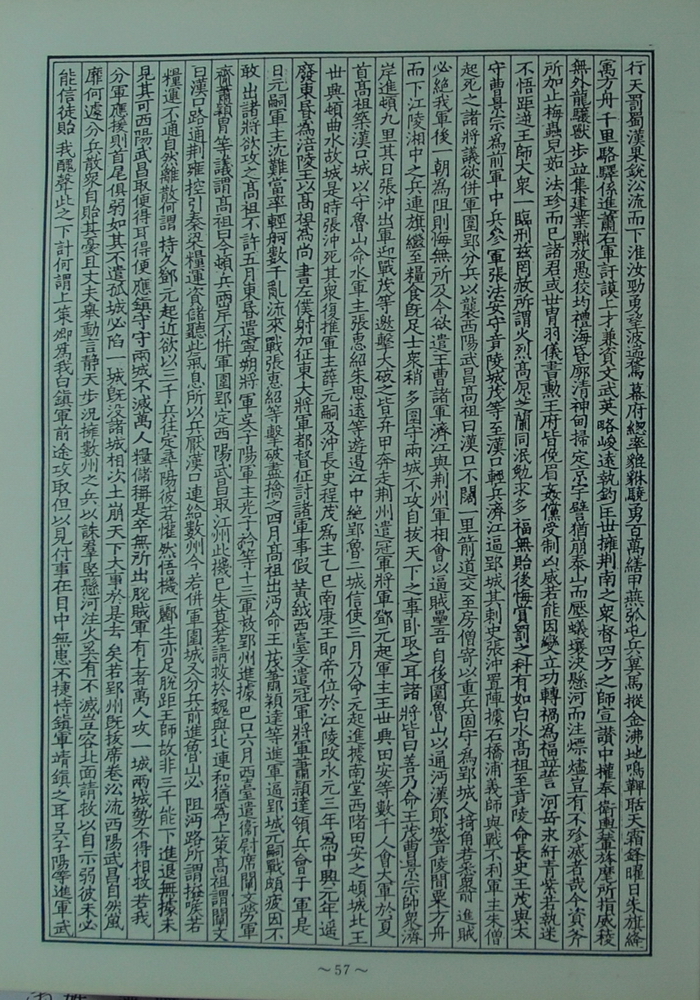 行天罰蜀漢果銳沿流而下淮汝勁勇望波遄騖幕府總率貔貅驍勇百萬繕甲燕弧屯兵冀馬摐金沸地鳴鞞聒天霜鋒曜日朱旗絳
寓方舟千里駱驛係進蕭右軍訏謨上才兼資文武英略峻遠執鈞匡世擁荊南之衆督四方之師宣讚中權奉衛輿輦旍麾所指威稜
無外龍驤獸步並集建業黜放愚狡均禮海昏廓清神甸掃定京宇譬猶崩泰山而壓蟻壤決懸河而注熛燼豈有不殄滅者哉今資斧
所加止梅蟲兒茹法珍而已諸君或世冑羽儀書勳王府皆俛眉姦黨受制凶威若能因變立功轉禍為福並誓河岳永紆青紫若執迷
不悟距逆王師大衆一臨刑茲罔赦所謂火烈高原芝蘭同泯勉求多福無貽後悔賞罰之科有如白水高祖至竟陵命長史王茂與太
守曹景宗為前軍中兵參軍張法安守竟陵城茂等至漢口輕兵濟江逼郢城其刺史張沖置陣據石橋浦義師與戰不利軍主朱僧
起死之諸將議欲併軍圍郢分兵以襲西陽武昌高祖曰漢口不闊一里箭道交至房僧寄以重兵固守為郢城人掎角若悉衆前進賊
必絕我軍後一朝為阻則悔無所及今欲遣王曹諸軍濟江與荊州軍相會以逼賊壘吾自後圍魯山以通沔漢鄖城竟陵間粟方舟
而下江陵湘中之兵連旗繼至糧食既足士衆稍多圍守兩城不攻自拔天下之事臥取之耳諸將皆曰善乃命王茂曹景宗帥衆濟
岸進頓九里其日張沖出軍迎戰茂等邀擊大破之皆弃甲奔走荊州遣冠軍將軍鄧元起軍主王世興田安等數千人會大軍於夏
首高祖築漢口城以守魯山命水軍主張惠紹朱思遠等遊遏江中絕郢魯二城信使三月乃命元起進據南堂西陼田安之頓城北王
世興頓曲水故城是時張沖死其衆復推軍主薛元嗣及沖長史程茂為主乙巳南康王即帝位於江陵改永元三年為中興元年遙
廢東昏為涪陵王以高祖為尚書左僕射加征東大將軍都督征討諸軍事假黃鉞西臺又遣冠軍將軍蕭穎達領兵會于軍是
日元嗣軍主沈難當率輕舸數千亂流來戰張惠紹等擊破盡擒之四月高祖出沔命王茂蕭穎達等進軍逼郢城元嗣戰頗疲因不
敢出諸將欲攻之高祖不許五月東昏遣寧朔將軍吳子陽軍主光子衿等十三軍救郢州進據巴口六月西臺遣衛尉席闡文勞軍
齎蕭穎胄等議謂高祖曰今頓兵兩岸不併軍圍郢定西陽武昌取江州此機已失莫若請救於魏與北連和猶為上策高祖謂闡文
曰漢口路通荊雍控引秦梁糧運資儲聽此氣息所以兵壓漢口連絡數州今若併軍圍城又分兵前進魯山必阻沔路所謂搤喉若
糧運不通自然離散何謂持久鄧元起近欲以三千兵往定尋陽彼若懽然悟機一酈生亦足脫距王師故非三千能下進退無據未
見其可西陽武昌取便得耳得便應鎮守守兩城不減萬人糧儲稱是卒無所出脫賊軍有上者萬人攻一城兩城勢不得相救若我
分軍應援則首尾俱弱如其不遣孤城必陷一城既沒諸城相次土崩天下大事於是去矣若郢州既拔席卷沿流西陽武昌自然風
靡何遽分兵散衆自貽其憂且丈夫舉動言靜天步況擁數州之兵以誅羣豎懸河注火奚有不滅豈容北面請救以自示弱彼未必
能信徒貽我醜聲此之下計何謂上策卿為我白鎮軍前途攻取但以見付事在目中無患不捷恃鎮軍靖鎮之耳吳子陽等進軍武
～57～